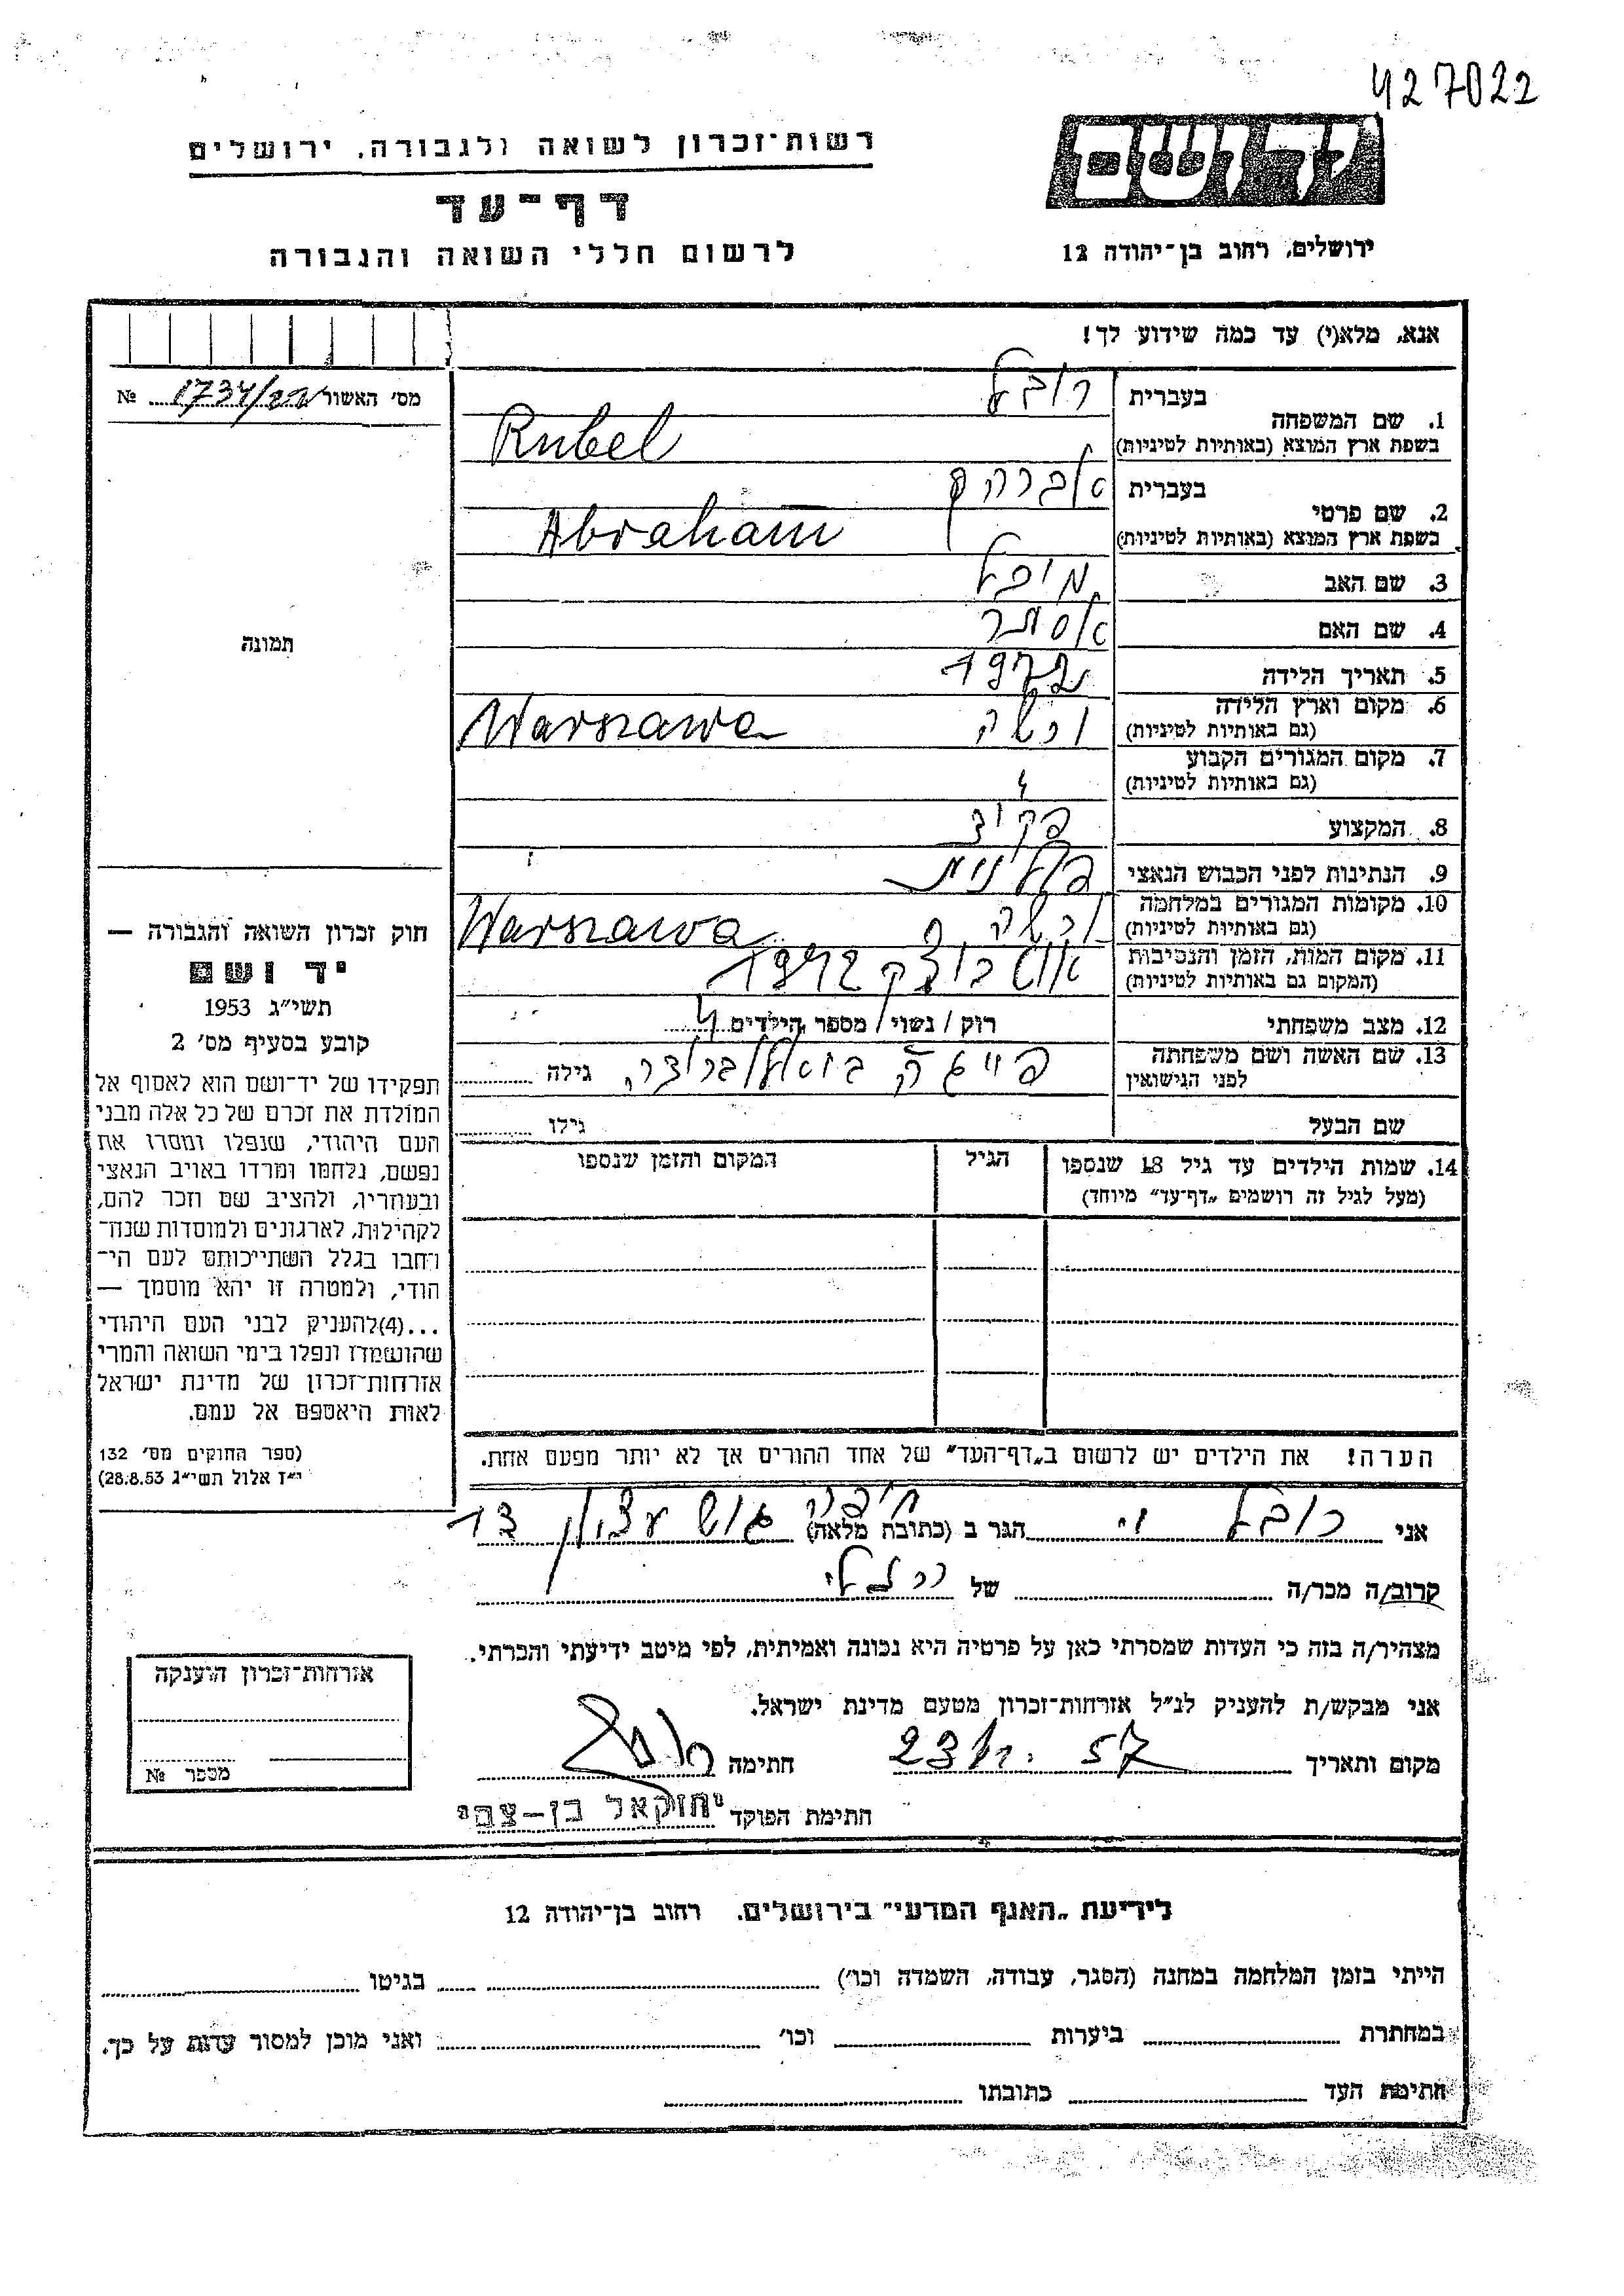 427022
יד ושם
רשות־זכרון לשואה ולגבורה, ירושלים
דף־עד
לרשום חללי השואה והגבורה
ירושלים, רחוב בן־יהודה 12
אנא, מלא(י) עד כמה שידוע לך!
מס׳ האשור 1734/22 №
1. שם המשפחה
בעברית רובל
בשפת ארץ המוצא (באותיות לטיניות) Rubel
2. שם פרטי
בעברית אברהם
בשפת ארץ המוצא (באותיות לטיניות) Abraham
3. שם האב מיכל
4. שם האם אסתר
5. תאריך הלידה
6. מקום וארץ הלידה
(גם באותיות לטיניות) ורשה Warszawa
7. מקום המגורים הקבוע
(גם באותיות לטיניות)
8. המקצוע פקיד
9. הנתינות לפני הכבוש הנאצי פולנית
10. מקומות המגורים במלחמה
(גם באותיות לטיניות) ורשה Warszawa
11. מקום המות, הזמן והנסיבות
(המקום גם באותיות לטיניות) 1942
12. מצב משפחתי רוק / נשוי / מספר הילדים
13. שם האשה ושם משפחתה
לפני הנישואין פייגה גילה
שם הבעל גילו
14. שמות הילדים עד גיל 18 שנספו
(מעל לגיל זה רושמים „דף־עד״ מיוחד)
הגיל
המקום והזמן שנספו
הערה! את הילדים יש לרשום ב„דף־העד״ של אחד ההורים אך לא יותר מפעם אחת.
תמונה
חוק זכרון השואה והגבורה —
יד ושם
תשי״ג 1953
קובע בסעיף מס׳ 2
תפקידו של יד־ושם הוא לאסוף אל
המולדת את זכרם של כל אלה מבני
העם היהודי, שנפלו ומסרו את
נפשם, נלחמו ומרדו באויב הנאצי
ובעוזריו, ולהציב שם וזכר להם,
לקהילות, לארגונים ולמוסדות שנח־
רבו בגלל השתייכותם לעם הי־
הודי, ולמטרה זו יהא מוסמך —
...(4) להעניק לבני העם היהודי
שהושמדו ונפלו בימי השואה והמרי
אזרחות־זכרון של מדינת ישראל
לאות היאספם אל עמם.
(ספר החוקים מס׳ 132
י״ז אלול תשי״ג 28.8.53)
אני רובל הגר ב (כתובת מלאה) חיפה גוש עציון 13
קרוב/ה מכר/ה של
מצהיר/ה בזה כי העדות שמסרתי כאן על פרטיה היא נכונה ואמיתית, לפי מיטב ידיעתי והכרתי.
אני מבקש/ת להעניק לנ״ל אזרחות־זכרון מטעם מדינת ישראל.
מקום ותאריך 57 חתימה
חתימת הפוקד יחזקאל בן-צבי
אזרחות־זכרון הוענקה
מספר №
לידיעת „האגף המדעי״ בירושלים. רחוב בן־יהודה 12
הייתי בזמן המלחמה במחנה (הסגר, עבודה, השמדה וכו׳) בגיטו
במחתרת ביערות וכו׳ ואני מוכן למסור עדות על כך.
חתימת העד כתובתו